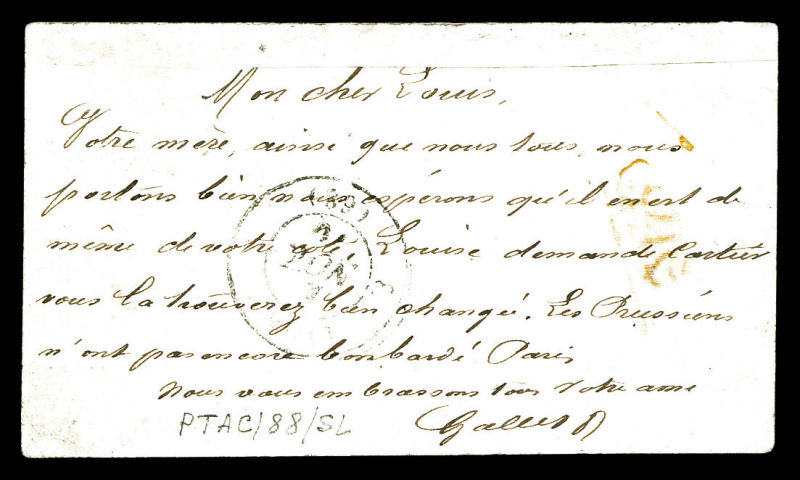 Mon cher Louis,
Votre mère, ainsi que nous tous, nous
portons bien nous espérons qu'il en est de
même de votre coté, Louise demande Cartier
vous la trouverez bien changée. Les Prussiéns
n'ont pas encore bombardé Paris
Nous vous embrassons tous Votre ami
(69)
PTAC/88/SL